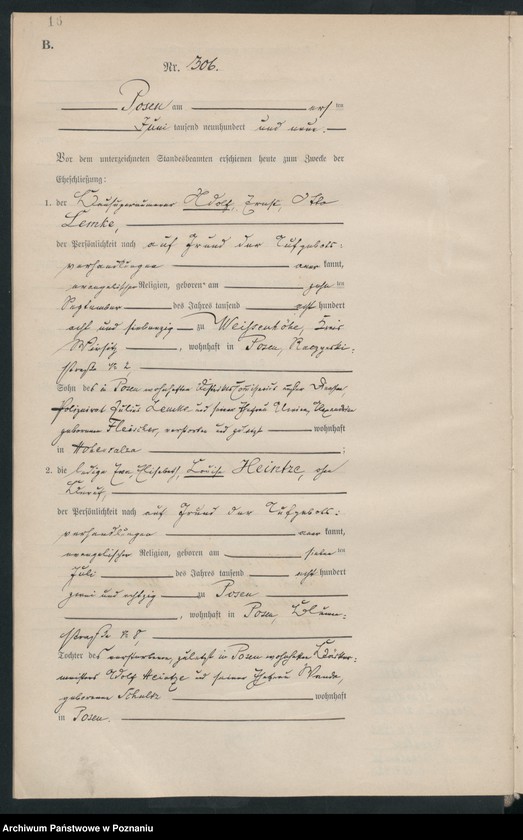 16
B.
Nr. 306.
Posen am erſten
Juni tausend neunhundert und neun.
Vor dem unterzeichneten Standesbeamten erschienen heute zum Zwecke der
Eheschließung:
1. der Adolf, Ernst, Otto
Lemke,
der Persönlichkeit nach auf Grund der Aufgebots-
verhandlungen anerkannt,
evangelischer Religion, geboren am zehnten
September des Jahres tausend achthundert
acht und siebenzig zu Weissenhöhe, Kreis
Wirsitz, wohnhaft in Posen, Raczynski-
straße № 2,
Sohn des in Posen wohnhaften
Julius Lemke und seiner Ehefrau
geborenen Fleischer, verstorben und zuletzt wohnhaft
in Hohensalza;
2. die ledige Eva, Elisabeth, Luise Heintze, ohne
Beruf,
der Persönlichkeit nach auf Grund der Aufgebots-
verhandlungen anerkannt,
evangelischer Religion, geboren am siebenten
Juli des Jahres tausend achthundert
zwei und achtzig zu Posen
, wohnhaft in Posen, Blumen-
straße № 8,
Tochter des verstorbenen, zuletzt in Posen wohnhaften Bäcker-
meisters Adolf Heintze und seiner Ehefrau Wanda,
geborenen Schulz wohnhaft
in Posen.
Archiwum Państwowe w Poznaniu